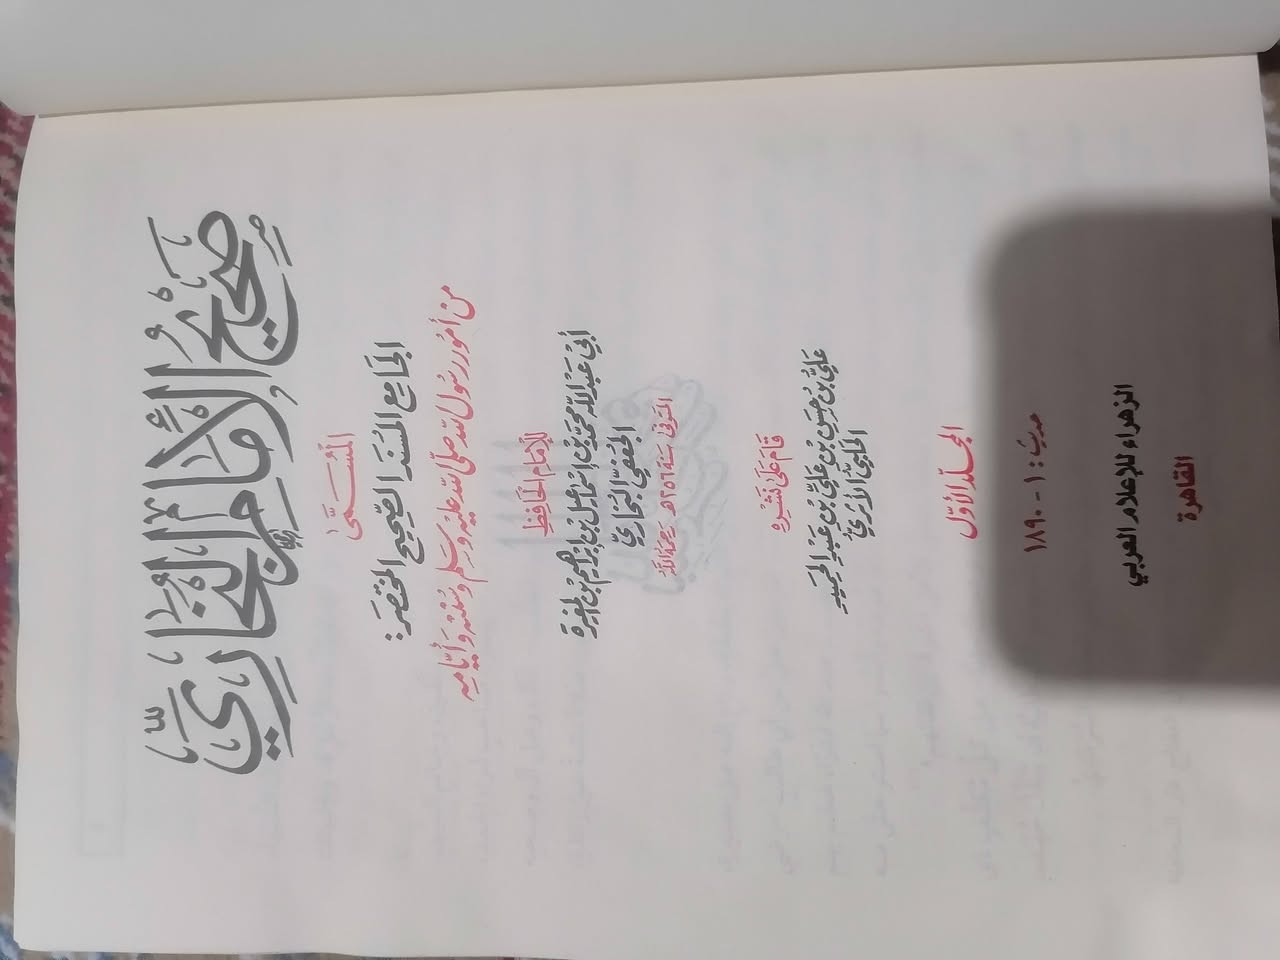 صَحِيحُ الإِمَامِ البُخَارِيِّ
المُسَمَّى
الجَامِعَ المُسْنَدَ الصَّحِيحَ المُخْتَصَرَ:
مِنْ أُمُورِ رَسُولِ اللهِ صَلَّى اللهُ عَلَيْهِ وَسَلَّمَ وَسُنَنِهِ وَأَيَّامِهِ
لِلإِمَامِ الحَافِظِ
أَبِي عَبْدِ اللهِ مُحَمَّدِ بْنِ إِسْمَاعِيلَ بْنِ إِبْرَاهِيمَ بْنِ المُغِيرَةِ
الجُعْفِيِّ البُخَارِيِّ
المُتَوَفَّى سَنَةَ ٢٥٦هـ رَحِمَهُ اللهُ
قَامَ عَلَى نَشْرِهِ
عَلِيُّ بْنُ حَسَنِ بْنِ عَلِيِّ بْنِ عَبْدِ الحَمِيدِ
الحَلَبِيُّ الأَثَرِيُّ
المجَلَّدُ الأَوَّل
حَدِيث: ١ - ١٨٩٠
الزهراء للإعلام العربي
القاهرة